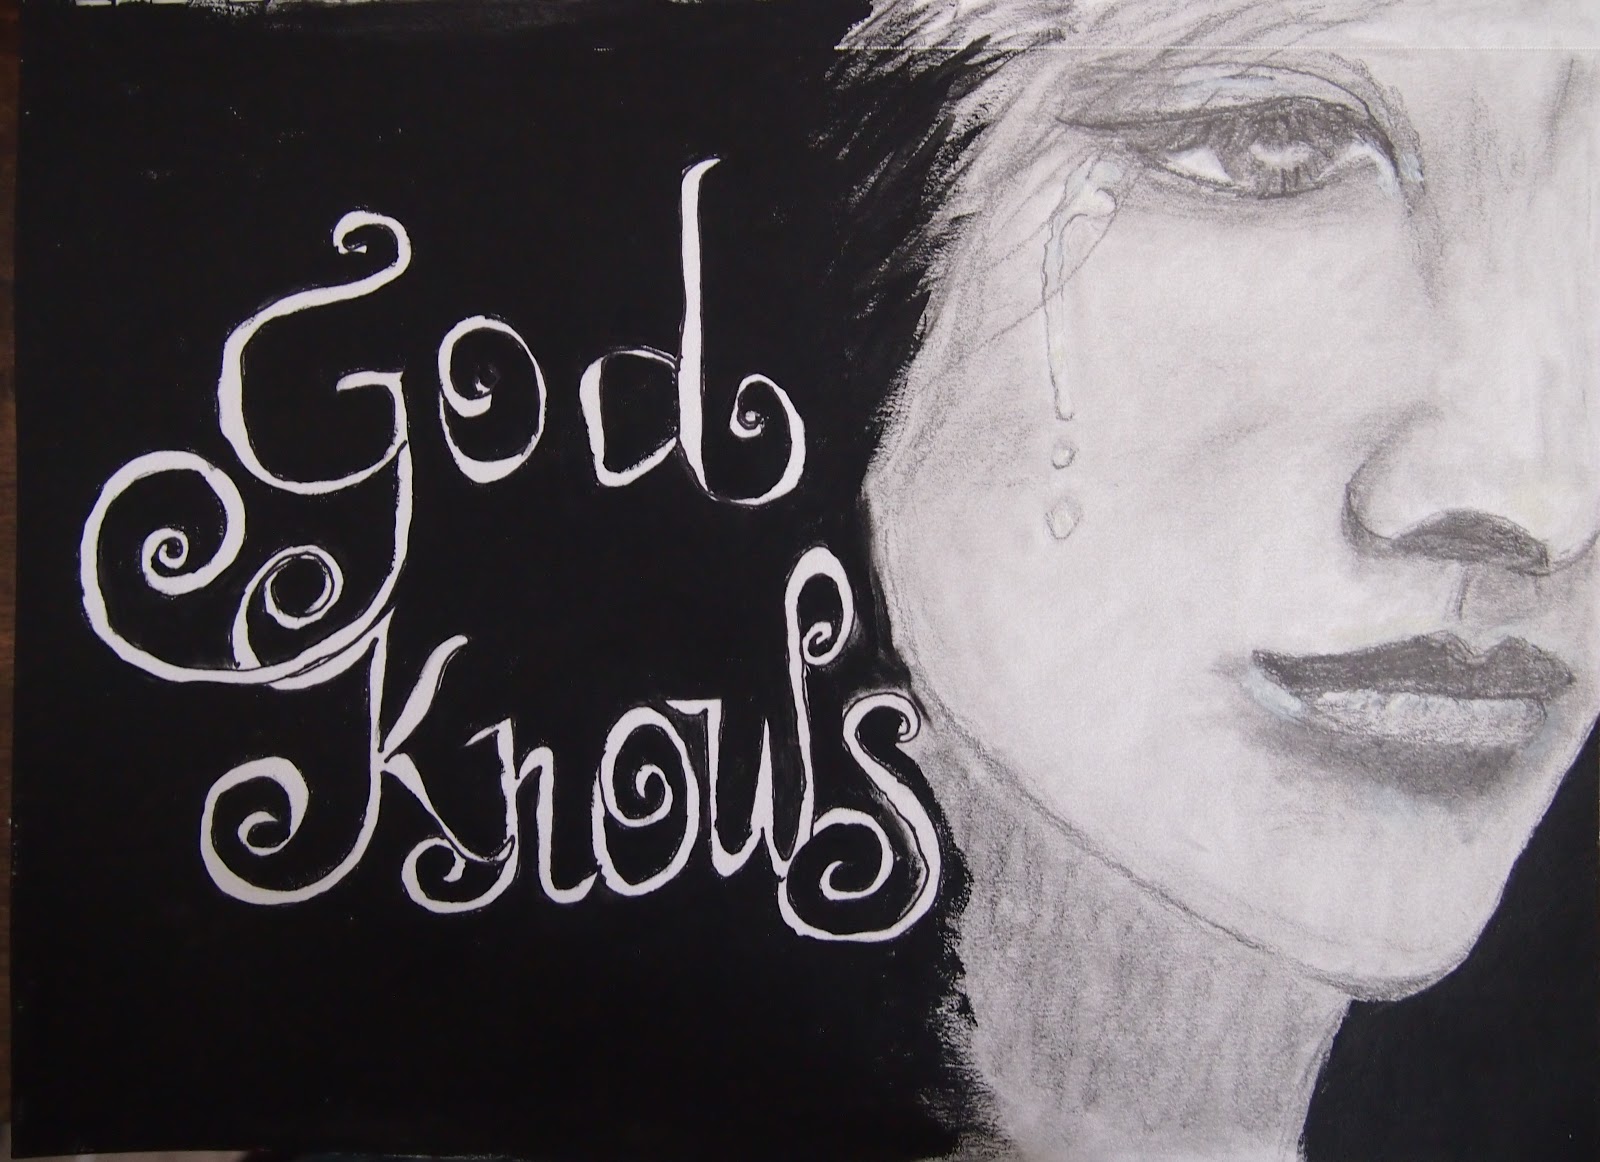 God
Knows